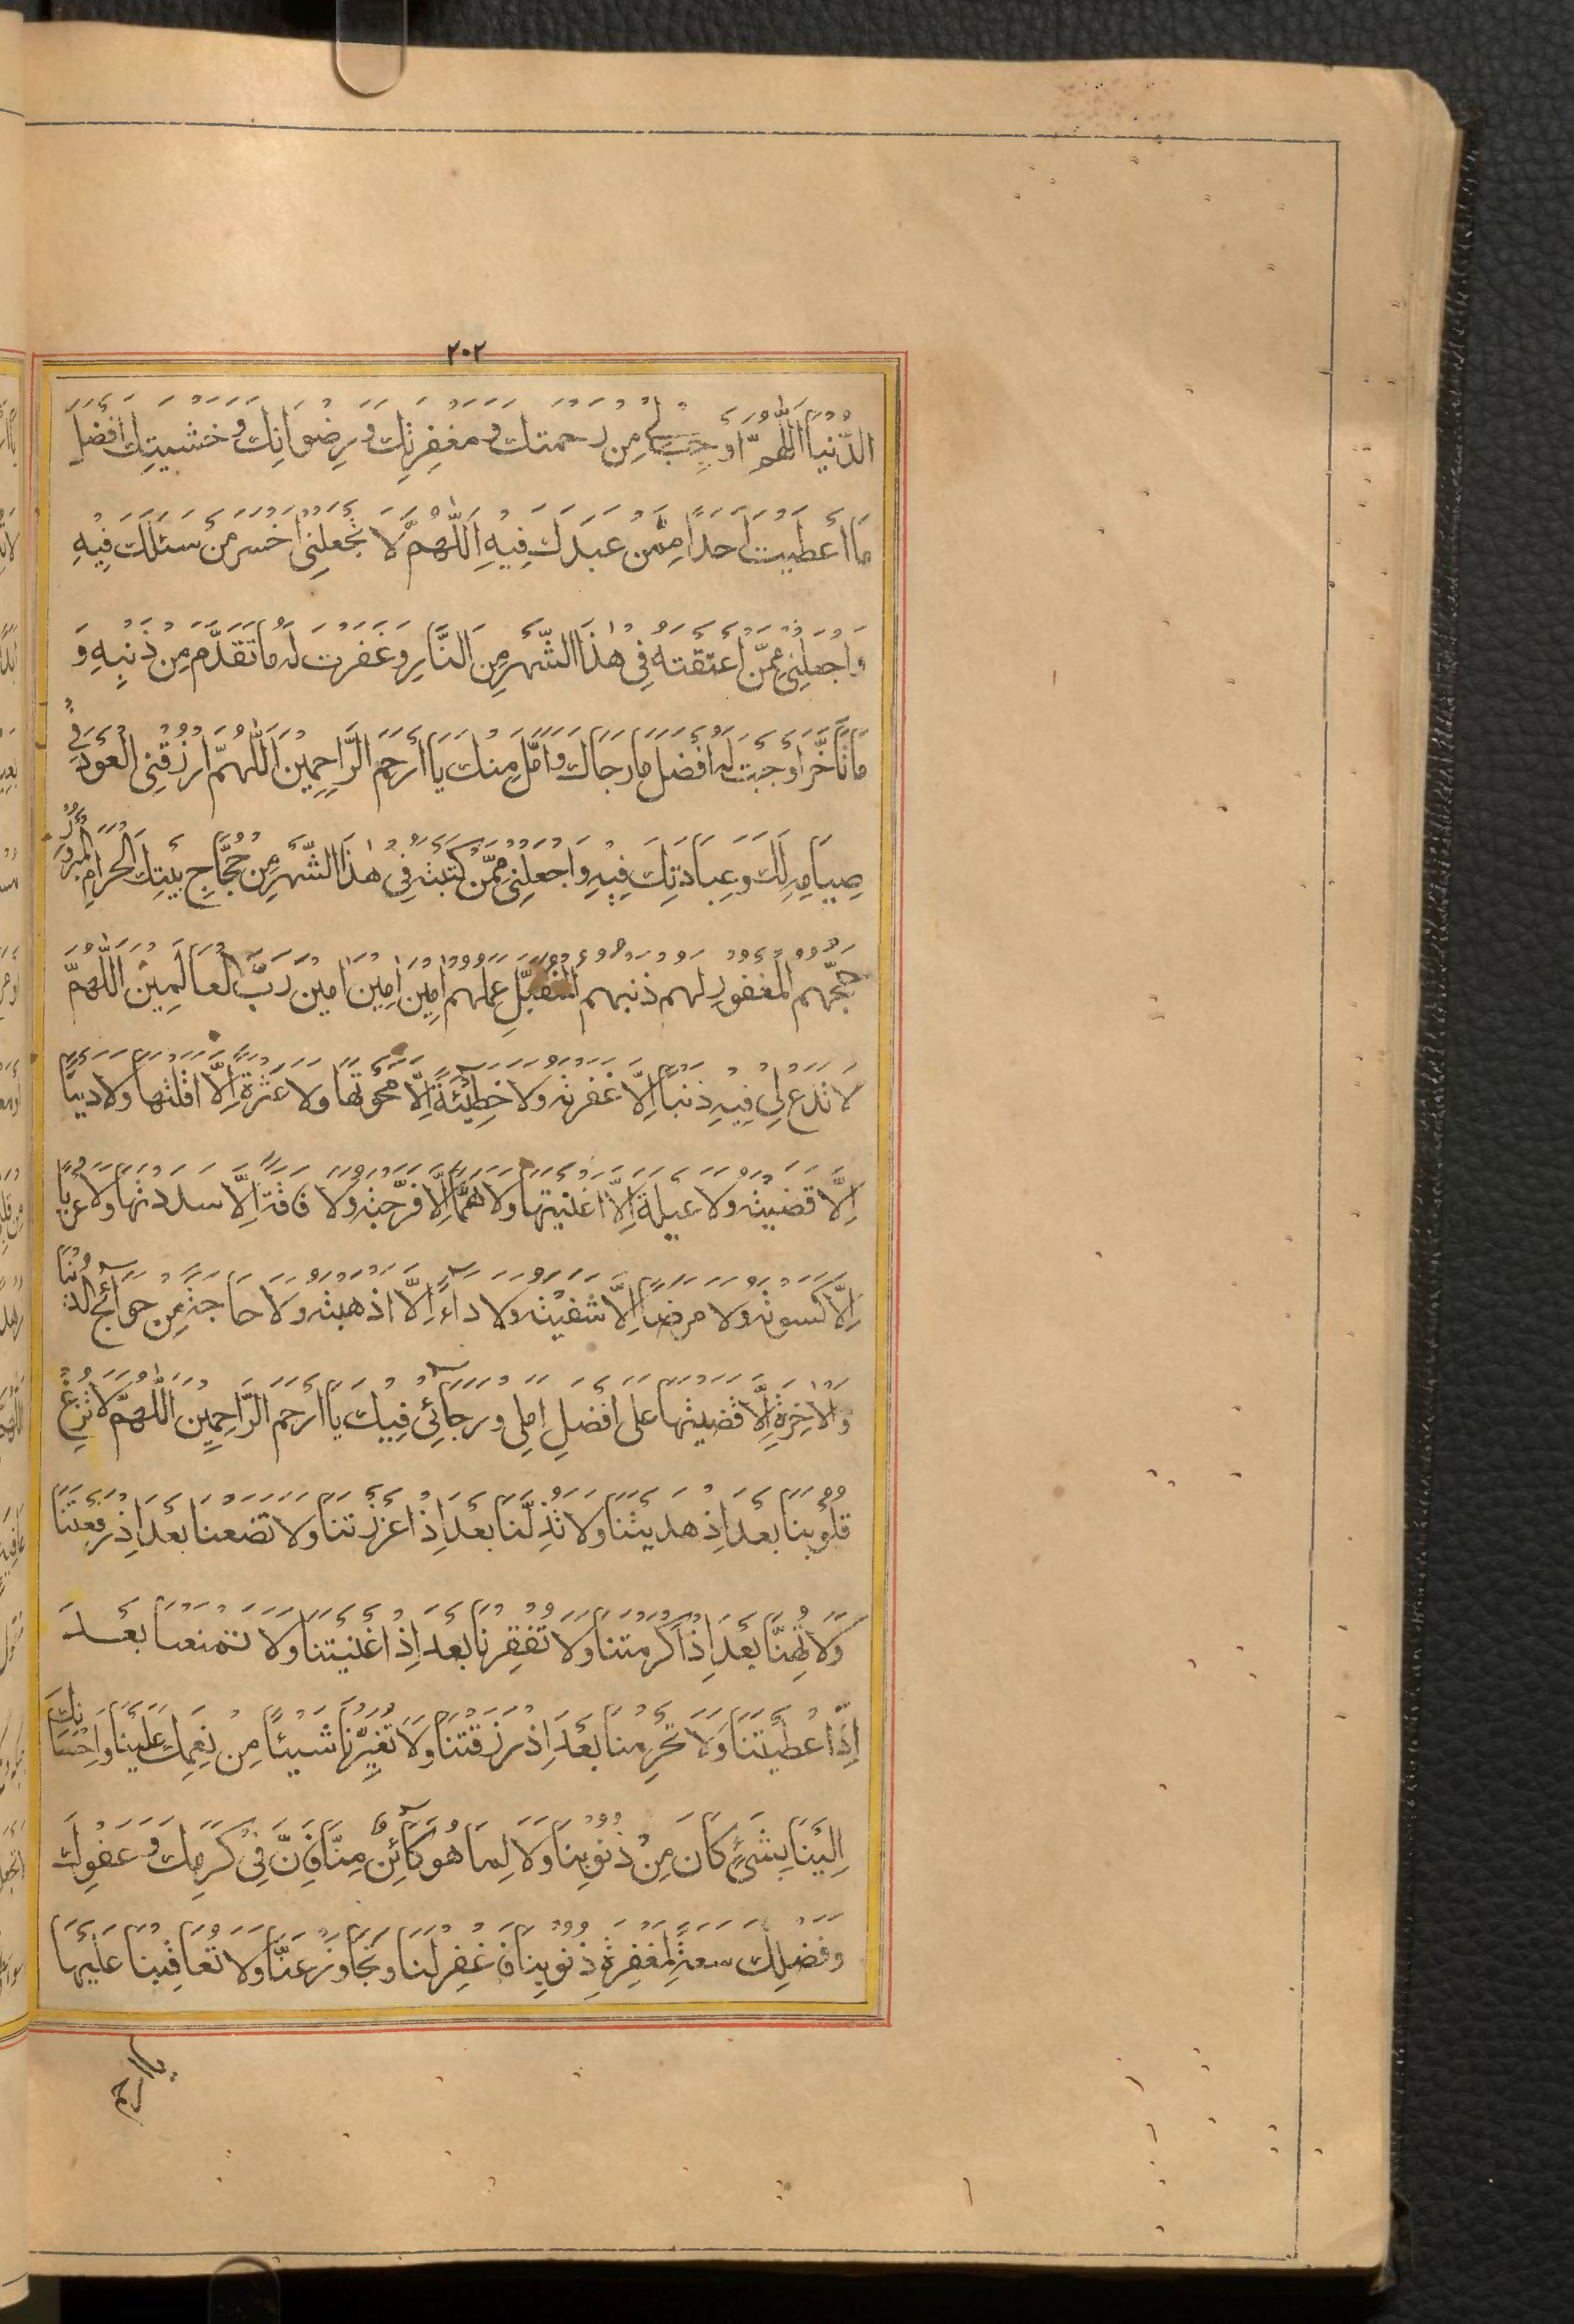 ٢٠٢
الدُّنْيَا اَللّٰهُمَّ اَوْجِبْ لِى مِنْ رَحْمَتِكَ وَمَغْفِرَتِكَ وَرِضْوَانِكَ وَخَشْيَتِكَ اَفْضَلَ
مَا اَعْطَيْتَ اَحَدًا مِمَّنْ عَبَدَكَ فِيهِ اَللّٰهُمَّ لَا تَجْعَلْنِى اَخْسَرَ مَنْ سَئَلَكَ فِيهِ
وَاجْعَلْنِى مِمَّنْ اَعْتَقْتَهُ فِى هٰذَا الشَّهْرِ مِنَ النَّارِ وَغَفَرْتَ لَهُ مَا تَقَدَّمَ مِنْ ذَنْبِهِ وَ
مَا تَاَخَّرَ اَوْجَبْتَ لَهُ اَفْضَلَ مَا رَجَاكَ وَاَمَّلَ مِنْكَ يَا اَرْحَمَ الرَّاحِمِينَ اَللّٰهُمَّ ارْزُقْنِى الْعَوْدَ فِى
صِيَامِهِ لَكَ وَعِبَادَتِكَ فِيهِ وَاجْعَلْنِى مِمَّنْ كَتَبْتَهُ فِى هٰذَا الشَّهْرِ مِنْ حُجَّاجِ بَيْتِكَ الْحَرَامِ الْمَبْرُورِ
حَجُّهُمْ الْمَغْفُورِ لَهُمْ ذَنْبُهُمْ الْمُتَقَبَّلِ عَمَلُهُمْ اٰمِينَ اٰمِينَ اٰمِينَ رَبَّ الْعَالَمِينَ اَللّٰهُمَّ
لَا تَدَعْ لِى فِيهِ ذَنْبًا اِلَّا غَفَرْتَهُ وَلَا خَطِيئَةً اِلَّا مَحَوْتَهَا وَلَا عَثْرَةً اِلَّا اَقَلْتَهَا وَلَا دَيْنًا
اِلَّا قَضَيْتَهُ وَلَا عَيْلَةً اِلَّا اَغْنَيْتَهَا وَلَا هَمًّا اِلَّا فَرَّجْتَهُ وَلَا فَاقَةً اِلَّا سَدَدْتَهَا وَلَا عُرْيًا
اِلَّا كَسَوْتَهُ وَلَا مَرَضًا اِلَّا شَفَيْتَهُ وَلَا دَآءً اِلَّا اَذْهَبْتَهُ وَلَا حَاجَةً مِنْ حَوَآئِجِ الدُّنْيَا
وَالْاٰخِرَةِ اِلَّا قَضَيْتَهَا عَلَى اَفْضَلِ اَمَلِى وَرَجَآئِى فِيكَ يَا اَرْحَمَ الرَّاحِمِينَ اَللّٰهُمَّ لَا تُزِغْ
قُلُوبَنَا بَعْدَ اِذْ هَدَيْتَنَا وَلَا تُذِلَّنَا بَعْدَ اِذْ اَعْزَزْتَنَا وَلَا تَضَعْنَا بَعْدَ اِذْ رَفَعْتَنَا
وَلَا تُهِنَّا بَعْدَ اِذْ اَكْرَمْتَنَا وَلَا تُفْقِرْنَا بَعْدَ اِذْ اَغْنَيْتَنَا وَلَا تَمْنَعْنَا بَعْدَ
اِذْ اَعْطَيْتَنَا وَلَا تَحْرِمْنَا بَعْدَ اِذْ رَزَقْتَنَا وَلَا تُغَيِّرْنَا شَيْئًا مِنْ نِعَمِكَ عَلَيْنَا وَاِحْسَانِكَ
اِلَيْنَا بِشَىْءٍ كَانَ مِنْ ذُنُوبِنَا وَلَا لِمَا هُوَ كَآئِنٌ مِنَّا فَاِنَّ فِى كَرَمِكَ وَعَفْوِكَ
وَفَضْلِكَ سَعَةً لِمَغْفِرَةِ ذُنُوبِنَا فَاغْفِرْ لَنَا وَتَجَاوَزْ عَنَّا وَلَا تُعَاقِبْنَا عَلَيْهَا
يا ارحم